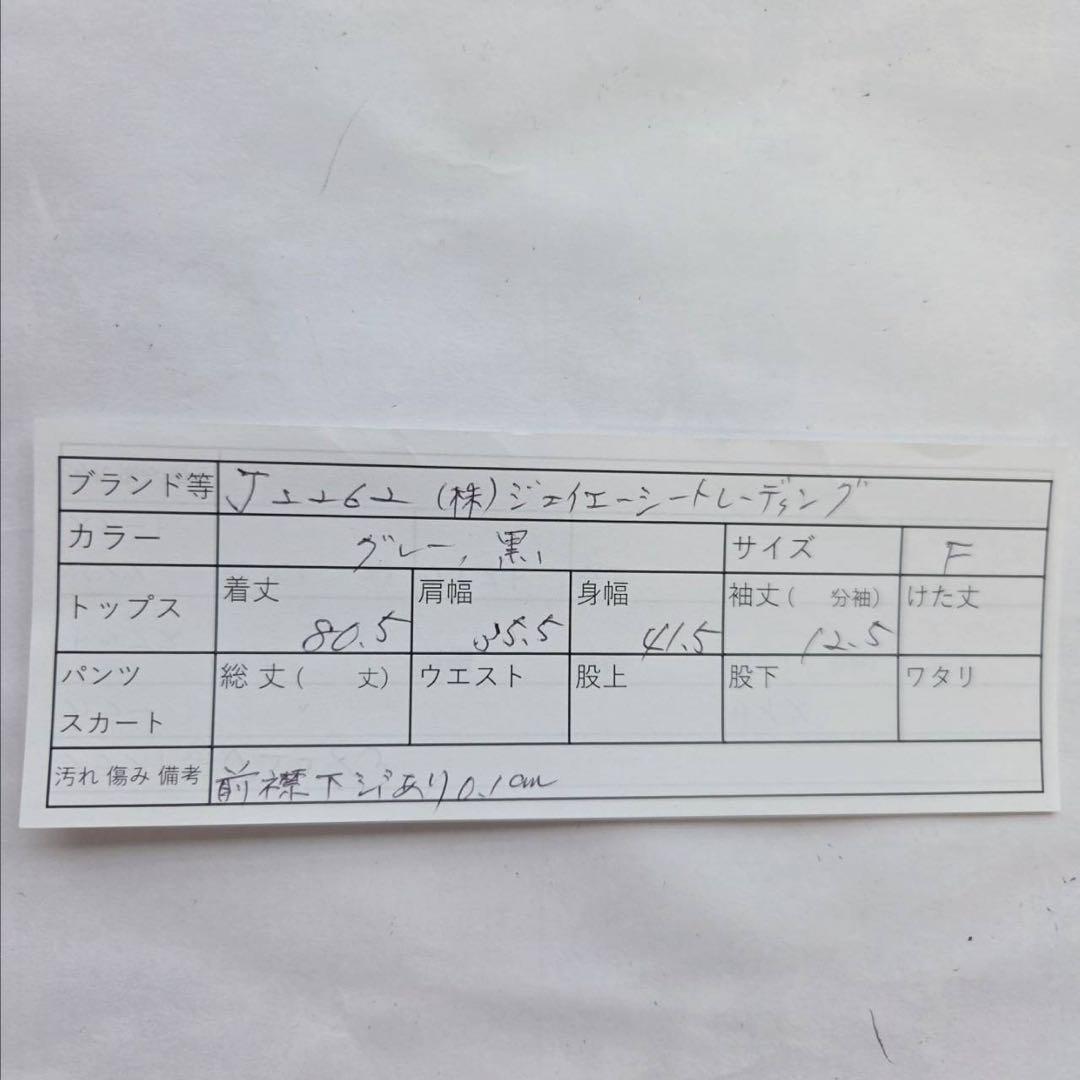 ブランド等 J2262 (株)ジェイエーシートレーディング
カラー グレー, 黒, サイズ F
トップス 着丈 80.5 肩幅 35.5 身幅 41.5 袖丈( 分袖) 12.5 けた丈
パンツ スカート 総丈( 丈) ウエスト 股上 股下 ワタリ
汚れ 傷み 備考 前襟下ジミあり0.1cm